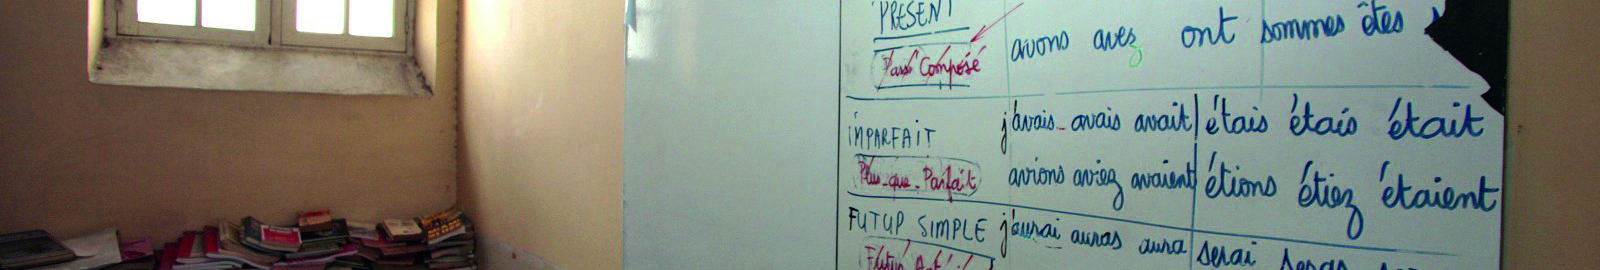 PRESENT
avons avez ont sommes êtes
Passé Composé
IMPARFAIT j'avais avais avait étais étais était
Plus-que-Parfait avions aviez avaient étions étiez étaient
FUTUR SIMPLE j'aurai auras aura serai seras
Futur